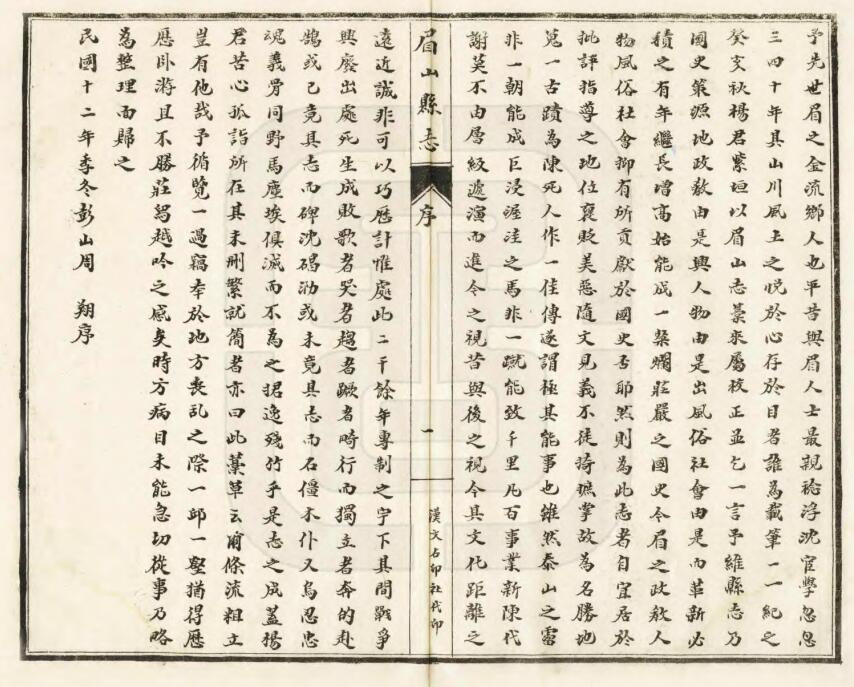 予先世眉之金流鄉人也平昔與眉人士最親稔浮沈宦學忽忽
三四十年其山川風土之悅於心存於目者誰為載筆一一紀之
癸亥秋楊君紫垣以眉山志藁來屬校正並乞一言予維縣志乃
國史策源地政敎由是興人物由是出風俗社會由是而革新必
積之有年繼長增高始能成一粲爛莊嚴之國史今眉之政敎人
物風俗社會抑有所貢獻於國史否耶然則為此志者自宜居於
批評指導之地位褒貶美惡隨文見義不徒掎摭掌故為名勝地
覓一古蹟為陳死人作一佳傳遂謂極其能事也雖然泰山之雷
非一朝能成巨浸渥洼之馬非一蹴能致千里凡百事業新陳代
謝莫不由層級遞演而進今之視昔與後之視今其文化距離之
眉山縣志 序 一 漢文石印社代印
遠近誠非可以巧歷計惟處此二千餘年專制之宇下其間戰爭
興廢出處死生成敗歌者哭者趨者蹶者畸行而獨立者奔的赴
鵠或已竟其志而碑沈碣泐或未竟其志而石僵木仆又烏忍忠
魂義骨同野馬塵埃俱滅而不為之捃逸殘竹乎是志之成蓋楊
君苦心孤詣所在其未刪繁就簡者亦曰此藁草云爾條流粗立
豈有他哉予循覽一過竊幸於地方喪亂之際一邱一壑猶得歷
歷臥游且不勝莊舄越吟之感矣時方病目未能急切從事乃略
為整理而歸之
民國十二年季冬彭山周 翔序